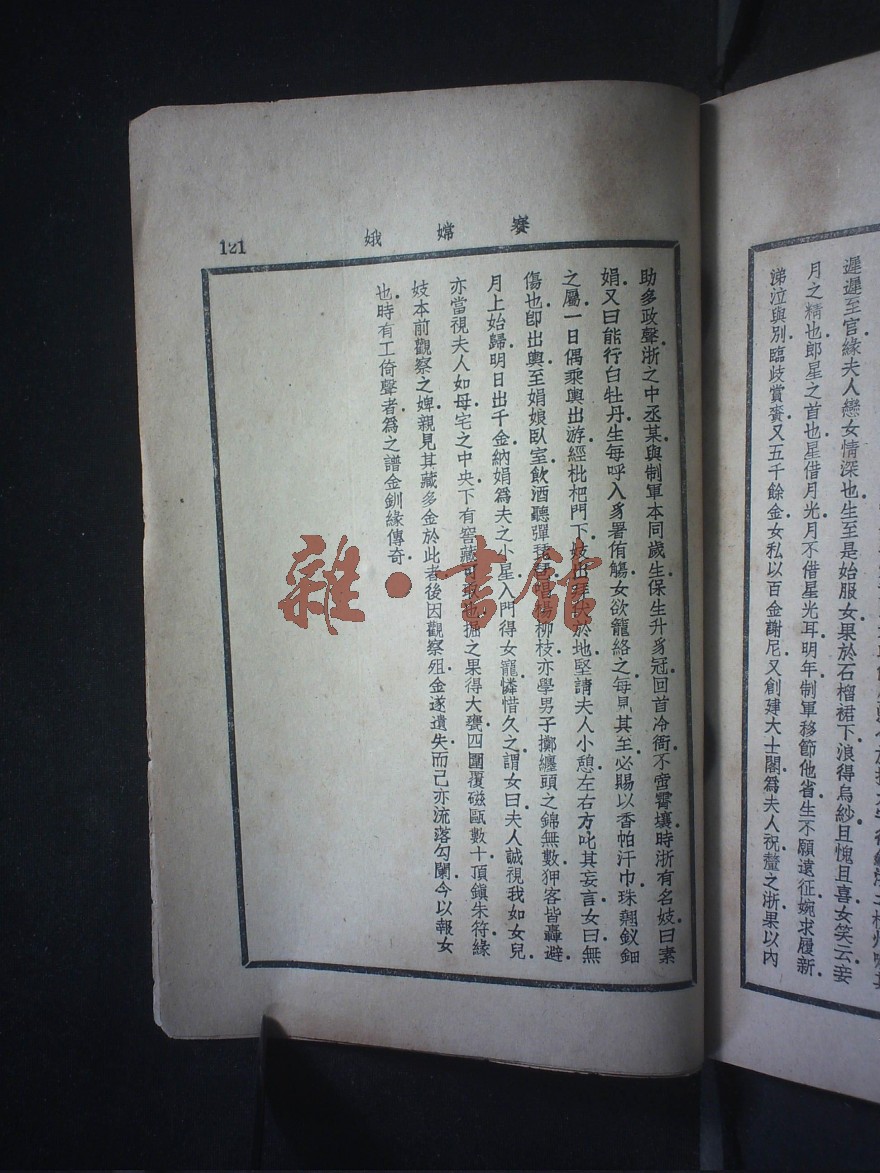 遲遲至官緣夫人戀女情深也生至是始服女果於石榴裙下浪得烏紗且愧且喜女笑云妾
月之精也郎星之首也星借月光月不借星光耳明年制軍移節他省生不願遠征婉求履新
涕泣與別臨歧賞賚又五千餘金女私以百金謝尼又創建大士閣爲夫人祝釐之浙果以內
賽嫦娥
121
助多政聲浙之中丞某與制軍本同歲生保生升豸冠回首冷衙不啻霄壤時浙有名妓曰素
娟又曰能行白牡丹生每呼入豸署侑觴女欲籠絡之每見其至必賜以香帕汗巾珠翹釵鈿
之屬一日偶乘輿出游經枇杷門下妓出於地堅請夫人小憩左右方叱其妄言女曰無
傷也卽出輿至娟娘臥室飲酒聽彈琵琶柳枝亦學男子擲纏頭之錦無數狎客皆轟避
月上始歸明日出千金納娟爲夫之小星入門得女寵憐惜久之謂女曰夫人誠視我如女兒
亦當視夫人如母宅之中央下有窖藏可取也掘之果得大甕四圍覆磁甌數十頂鎭朱符緣
妓本前觀察之婢親見其藏多金於此者後因觀察殂金遂遺失而己亦流落勾闌今以報女
也時有工倚聲者爲之譜金釧緣傳奇
雜·書館